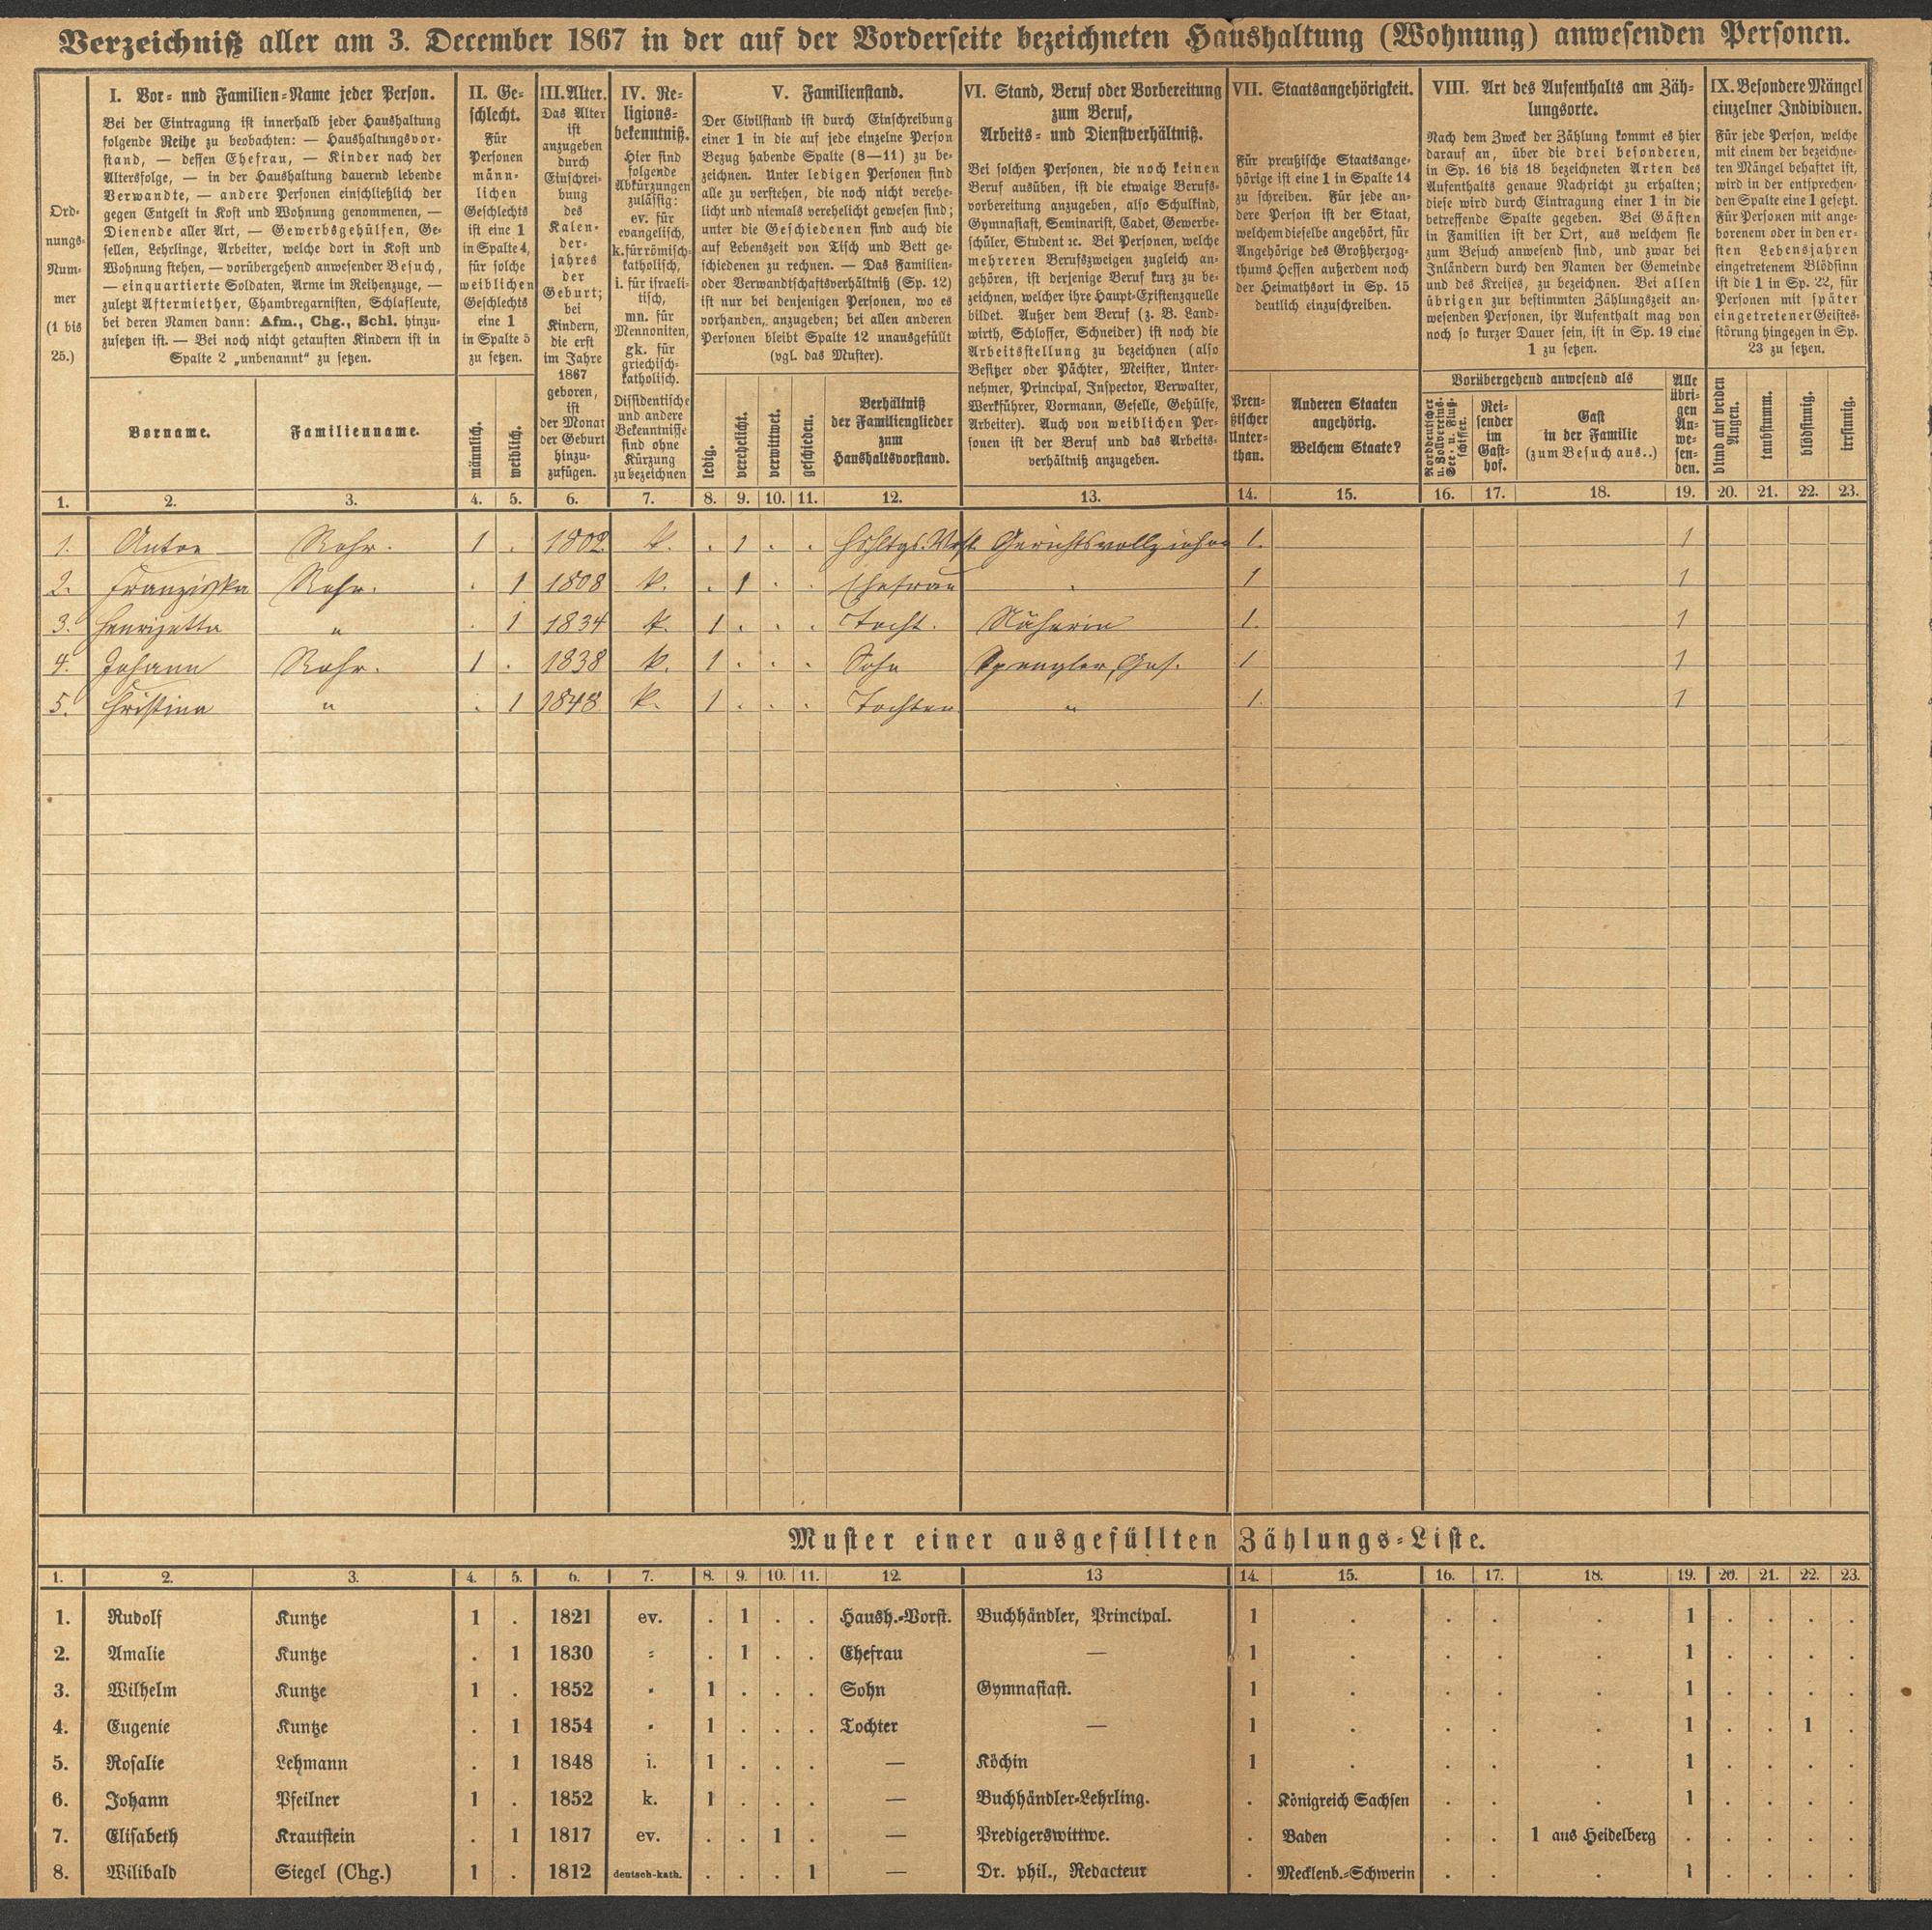 Verzeichniß aller am 3. December 1867 in der auf der Vorderseite bezeichneten Haushaltung (Wohnung) anwesenden Personen.
Ord-
nungs-
Num-
mer
(1 bis
25.)
I. Vor- und Familien-Name jeder Person.
Bei der Eintragung ist innerhalb jeder Haushaltung
folgende Reihe zu beobachten: — Haushaltungsvor-
stand, — dessen Ehefrau, — Kinder nach der
Altersfolge, — in der Haushaltung dauernd lebende
Verwandte, — andere Personen einschließlich der
gegen Entgelt in Kost und Wohnung genommenen, —
Dienende aller Art, — Gewerbsgehülfen, Ge-
sellen, Lehrlinge, Arbeiter, welche dort in Kost und
Wohnung stehen, — vorübergehend anwesender Besuch,
— einquartierte Soldaten, Arme im Reihenzuge, —
zuletzt Aftermiether, Chambregarnisten, Schlafleute,
bei deren Namen dann: Afm., Chg., Schl. hinzu-
zusetzen ist. — Bei noch nicht getauften Kindern ist in
Spalte 2 „unbenannt" zu setzen.
Vorname.
Familienname.
II. Ge-
schlecht.
Für
Personen
männ-
lichen
Geschlechts
ist eine 1
in Spalte 4,
für solche
weiblichen
Geschlechts
eine 1
in Spalte 5
zu setzen.
männlich.
weiblich.
III. Alter.
Das Alter
ist
anzugeben
durch
Einschrei-
bung
des
Kalen-
der-
jahres
der
Geburt;
bei
Kindern,
die erst
im Jahre
1867
geboren,
ist
der Monat
der Geburt
hinzu-
zufügen.
IV. Re-
ligions-
bekenntniß.
Hier sind
folgende
Abkürzungen
zulässig:
ev. für
evangelisch,
k. für römisch-
katholisch,
i. für israeli-
tisch,
mn. für
Mennoniten,
gk. für
griechisch-
katholisch.
Dissidentische
und andere
Bekenntnisse
sind ohne
Kürzung
zu bezeichnen
V. Familienstand.
Der Civilstand ist durch Einschreibung
einer 1 in die auf jede einzelne Person
Bezug habende Spalte (8—11) zu be-
zeichnen. Unter ledigen Personen sind
alle zu verstehen, die noch nicht verehe-
licht und niemals verehelicht gewesen sind;
unter die Geschiedenen sind auch die
auf Lebenszeit von Tisch und Bett ge-
schiedenen zu rechnen. — Das Familien-
oder Verwandtschaftsverhältniß (Sp. 12)
ist nur bei denjenigen Personen, wo es
vorhanden, anzugeben; bei allen anderen
Personen bleibt Spalte 12 unausgefüllt
(vgl. das Muster).
ledig.
verehelicht.
verwittwet.
geschieden.
Verhältniß
der Familienglieder
zum
Haushaltsvorstand.
VI. Stand, Beruf oder Vorbereitung
zum Beruf,
Arbeits- und Dienstverhältniß.
Bei solchen Personen, die noch keinen
Beruf ausüben, ist die etwaige Berufs-
vorbereitung anzugeben, also Schulkind,
Gymnasiast, Seminarist, Cadet, Gewerbe-
schüler, Student ꝛc. Bei Personen, welche
mehreren Berufszweigen zugleich an-
gehören, ist derjenige Beruf kurz zu be-
zeichnen, welcher ihre Haupt-Existenzquelle
bildet. Außer dem Beruf (z. B. Land-
wirth, Schlosser, Schneider) ist noch die
Arbeitsstellung zu bezeichnen (also
Besitzer oder Pächter, Meister, Unter-
nehmer, Principal, Inspector, Verwalter,
Werkführer, Vormann, Geselle, Gehülfe,
Arbeiter). Auch von weiblichen Per-
sonen ist der Beruf und das Arbeits-
verhältniß anzugeben.
VII. Staatsangehörigkeit.
Für preußische Staatsange-
hörige ist eine 1 in Spalte 14
zu schreiben. Für jede an-
dere Person ist der Staat,
welchem dieselbe angehört, für
Angehörige des Großherzog-
thums Hessen außerdem noch
der Heimathsort in Sp. 15
deutlich einzuschreiben.
Preu-
ßischer
Unter-
than.
Anderen Staaten
angehörig.
Welchem Staate?
VIII. Art des Aufenthalts am Zäh-
lungsorte.
Nach dem Zweck der Zählung kommt es hier
darauf an, über die drei besonderen,
in Sp. 16 bis 18 bezeichneten Arten des
Aufenthalts genaue Nachricht zu erhalten;
diese wird durch Eintragung einer 1 in die
betreffende Spalte gegeben. Bei Gästen
in Familien ist der Ort, aus welchem sie
zum Besuch anwesend sind, und zwar bei
Inländern durch den Namen der Gemeinde
und des Kreises, zu bezeichnen. Bei allen
übrigen zur bestimmten Zählungszeit an-
wesenden Personen, ihr Aufenthalt mag von
noch so kurzer Dauer sein, ist in Sp. 19 eine
1 zu setzen.
Vorübergehend anwesend als
Norddeutscher
u. Zollvereins-
See- u. Fluß-
schiffer.
Rei-
sender
im
Gast-
hof.
Gast
in der Familie
(zum Besuch aus..)
Alle
übri-
gen
An-
we-
sen-
den.
IX. Besondere Mängel
einzelner Individuen.
Für jede Person, welche
mit einem der bezeichne-
ten Mängel behaftet ist,
wird in der entsprechen-
den Spalte eine 1 gesetzt.
Für Personen mit ange-
borenem oder in den er-
sten Lebensjahren
eingetretenem Blödsinn
ist die 1 in Sp. 22, für
Personen mit später
eingetretener Geistes-
störung hingegen in Sp.
23 zu setzen.
blind auf beiden
Augen.
taubstumm.
blödsinnig.
irrsinnig.
1. 2. 3. 4. 5. 6. 7. 8. 9. 10. 11. 12. 13. 14. 15. 16. 17. 18. 19. 20. 21. 22. 23.
1. Anton Rohr. 1 . 1802 k. . 1 . . Hshltgs. Vrst. Gerichtsvollzieher 1. 1
2. Franziska Rohr. . 1 1808 k. . 1 . . Ehefrau . 1 1
3. Henrizetta " . 1 1834 k. 1 . . . Tocht. Näherin 1. 1
4. Johann Rohr. 1 . 1838 k. 1 . . . Sohn Spengler, Ges. 1 1
5. Christina " . 1 1848 k. 1 . . . Tochter " 1. 1
Muster einer ausgefüllten Zählungs-Liste.
1. 2. 3. 4. 5. 6. 7. 8. 9. 10. 11. 12. 13 14. 15. 16. 17. 18. 19. 20. 21. 22. 23.
1. Rudolf Kuntze 1 . 1821 ev. . 1 . . Haush.-Vorst. Buchhändler, Principal. 1 . . . . 1 . . . .
2. Amalie Kuntze . 1 1830 = . 1 . . Ehefrau — 1 . . . . 1 . . . .
3. Wilhelm Kuntze 1 . 1852 " 1 . . . Sohn Gymnasiast. 1 . . . . 1 . . . .
4. Eugenie Kuntze . 1 1854 " 1 . . . Tochter — 1 . . . . 1 . . 1 .
5. Rosalie Lehmann . 1 1848 i. 1 . . . — Köchin 1 . . . . 1 . . . .
6. Johann Pfeilner 1 . 1852 k. 1 . . . — Buchhändler-Lehrling. . Königreich Sachsen . . . 1 . . . .
7. Elisabeth Krautstein . 1 1817 ev. . . 1 . — Predigerswittwe. . Baden . . 1 aus Heidelberg . . . . .
8. Wilibald Siegel (Chg.) 1 . 1812 deutsch-kath. . . . 1 — Dr. phil., Redacteur . Mecklenb.-Schwerin . . . 1 . . . .